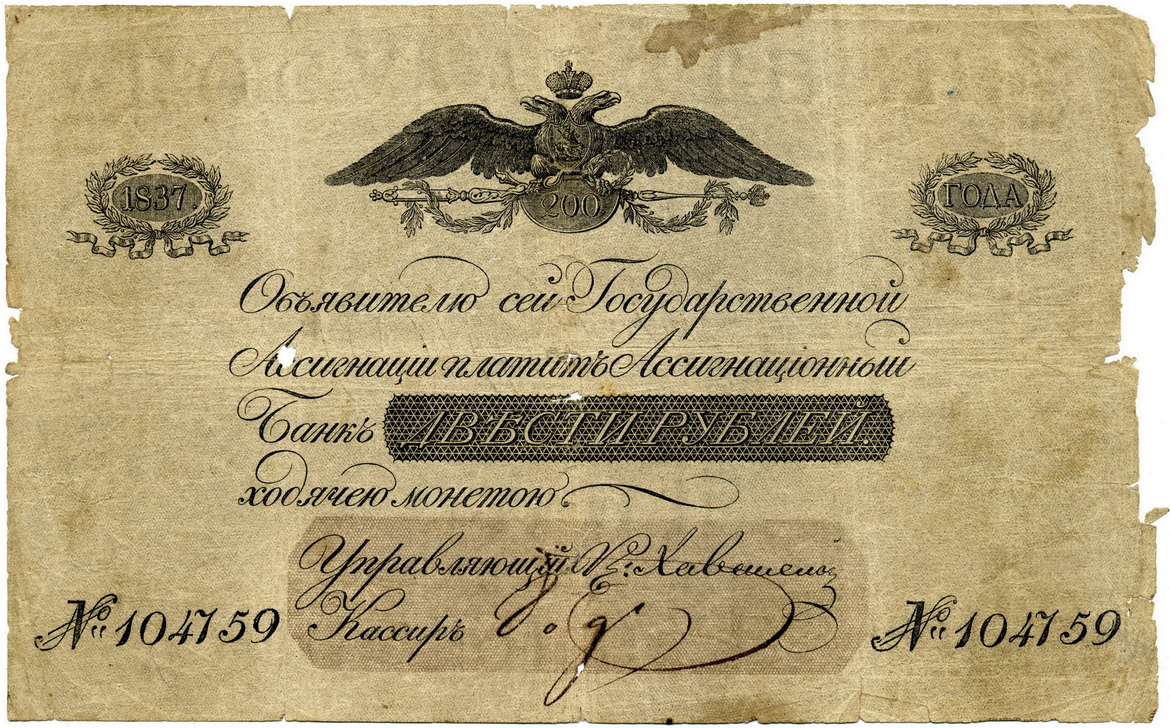 200
1837. ГОДА
Объявителю сей Государственной
Ассигнаціи платитъ Ассигнаціонный
Банкъ ДВѢСТИ РУБЛЕЙ.
ходячею монетою
Управляющій
Кассиръ
№ 104759 № 104759